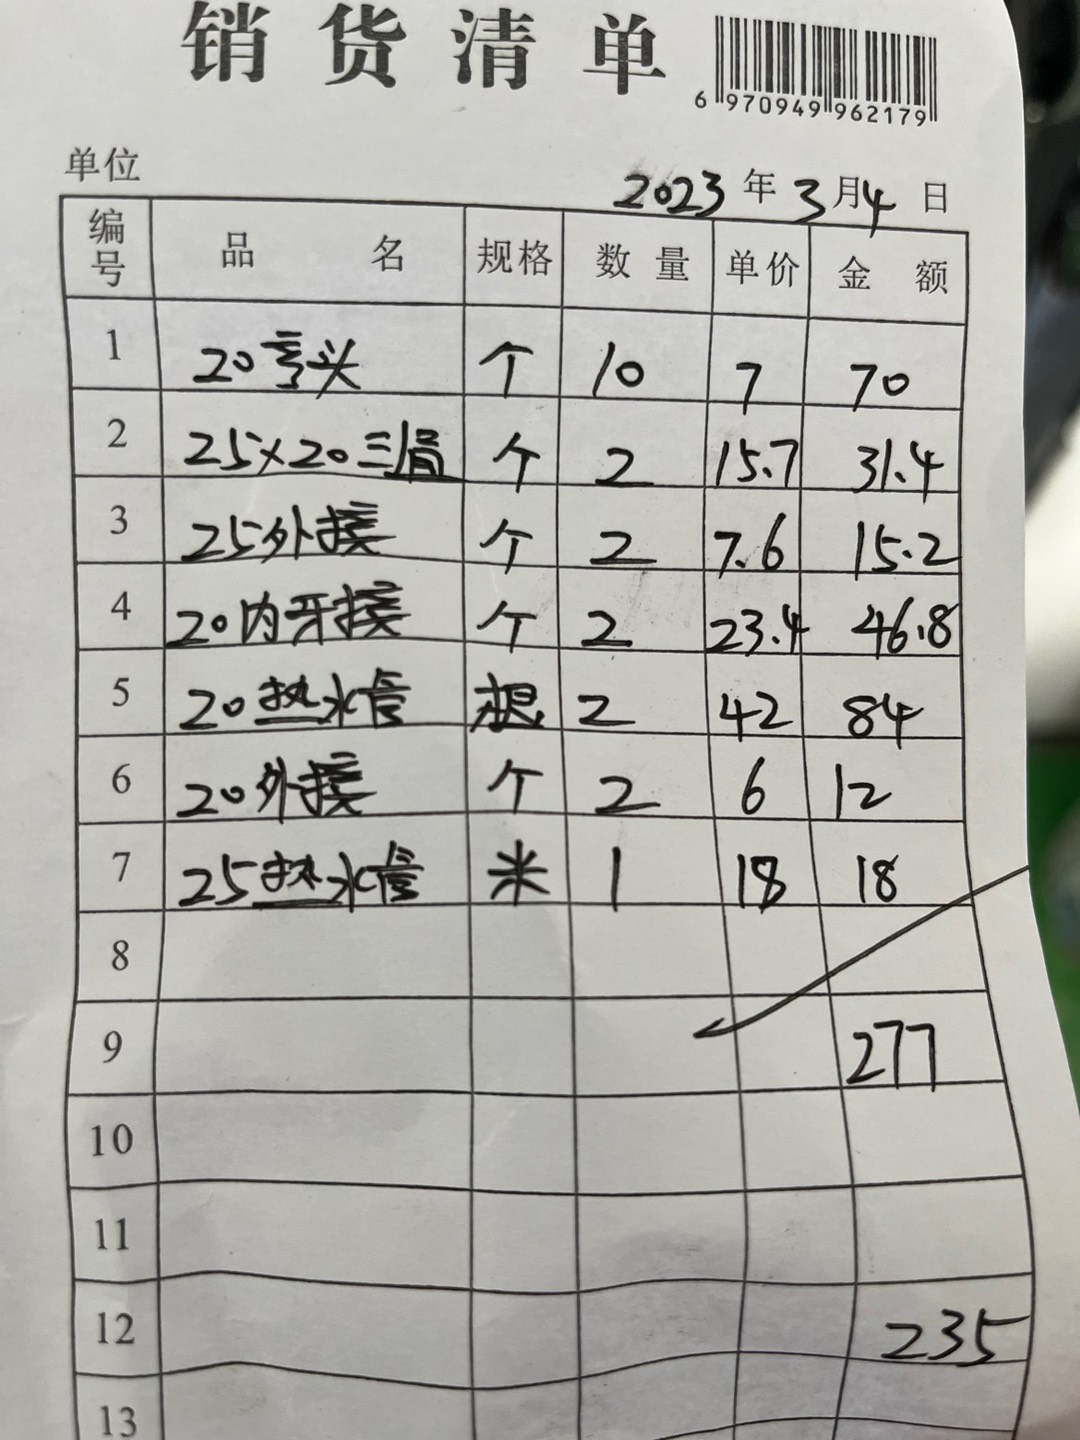 销货清单
6 970949 962179
单位
2023年3月4日
编号 品名 规格 数量 单价 金额
1 20弯头 个 10 7 70
2 25×20三通 个 2 15.7 31.4
3 25外接 个 2 7.6 15.2
4 20内牙接 个 2 23.4 46.8
5 20热水管 根 2 42 84
6 20外接 个 2 6 12
7 25热水管 米 1 18 18
8
9 277
10
11
12 235
13